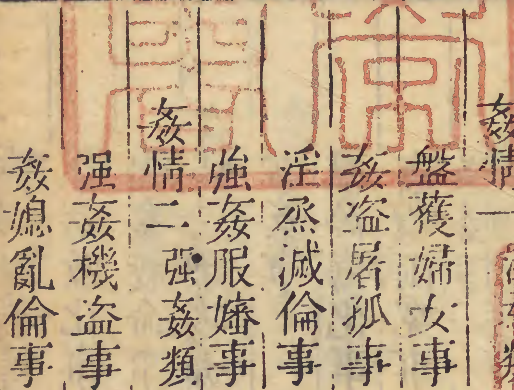 姦情一
盤獲婦女事
姦盗孱孤事
淫烝滅倫事
強姦服嬸事
姦情二 强姦類
强姦機盗事
姦媳亂倫事